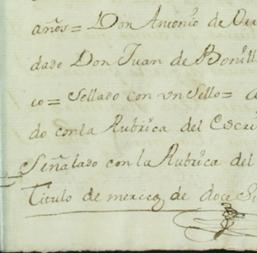 años = Don Antonio de
dado Don Juan de Bonill
co = Sellado con vn Sello =
do con la Rubrica del Escri
Señalado con la Rubrica del
Titulo de merced de doce Si